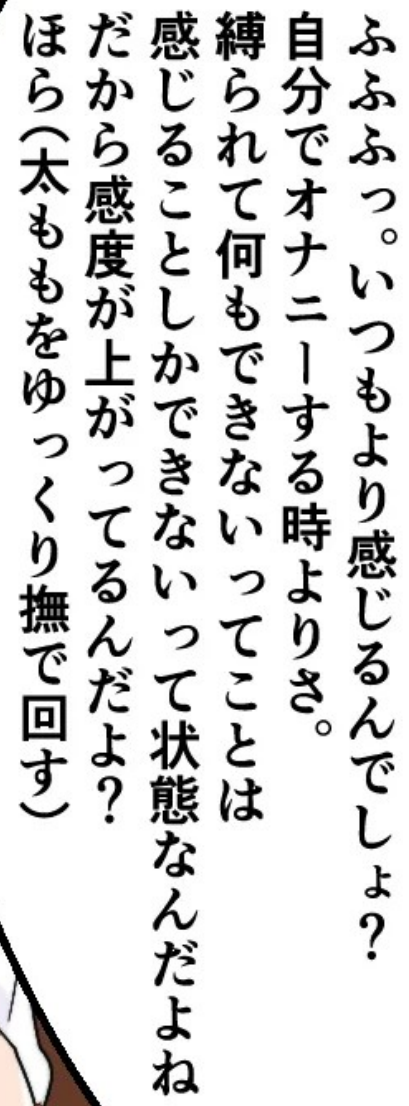 ふふふっ。いつもより感じるんでしょ？
自分でオナニーする時よりさ。
縛られて何もできないってことは
感じることしかできないって状態なんだよね
だから感度が上がってるんだよ？
ほら（太ももをゆっくり撫で回す）